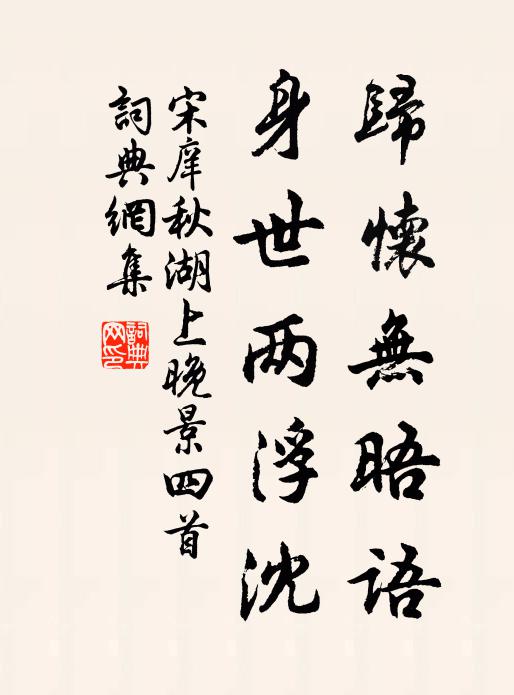 歸懷無晤語
身世两浮沈
宋庠秋湖上晚景四首
詞典網集
詞典網印